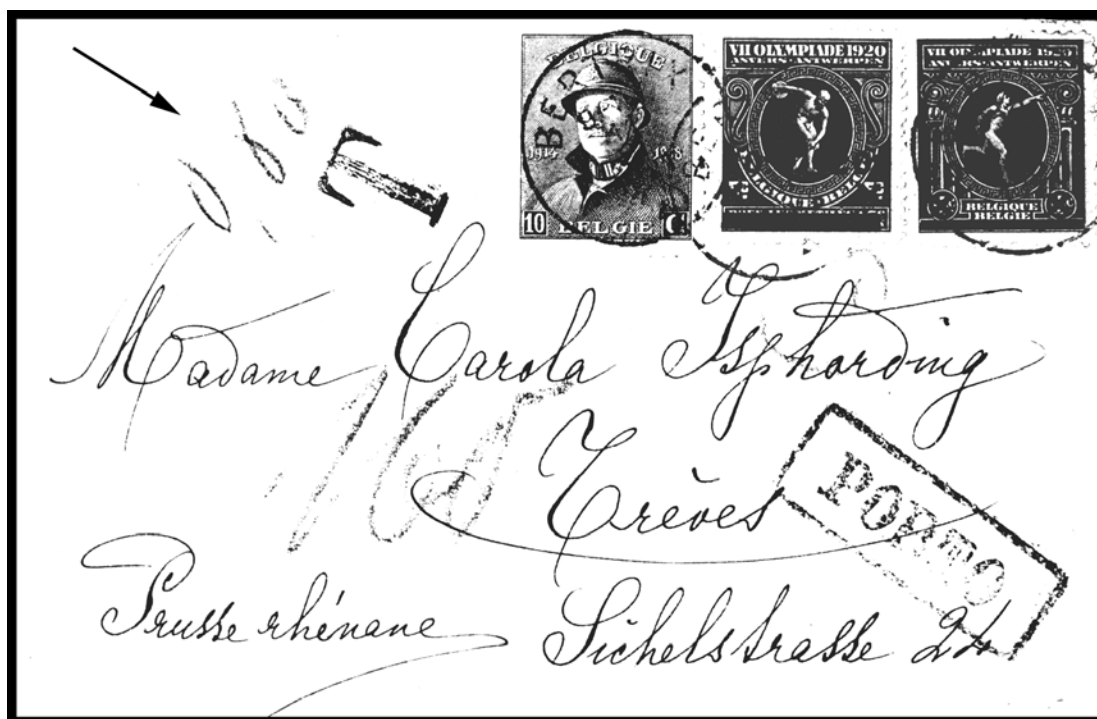 BELGIQUE
1914 1918
10 BELGIE
VII OLYMPIADE 1920
ANVERS·ANTWERPEN
BELGIQUE·BELGIE
VII OLYMPIADE 1920
ANVERS·ANTWERPEN
BELGIQUE
BELGIE
T
Madame Carola Isphording
Trèves
PORTO
Prusse rhénane Sichelstrasse 24